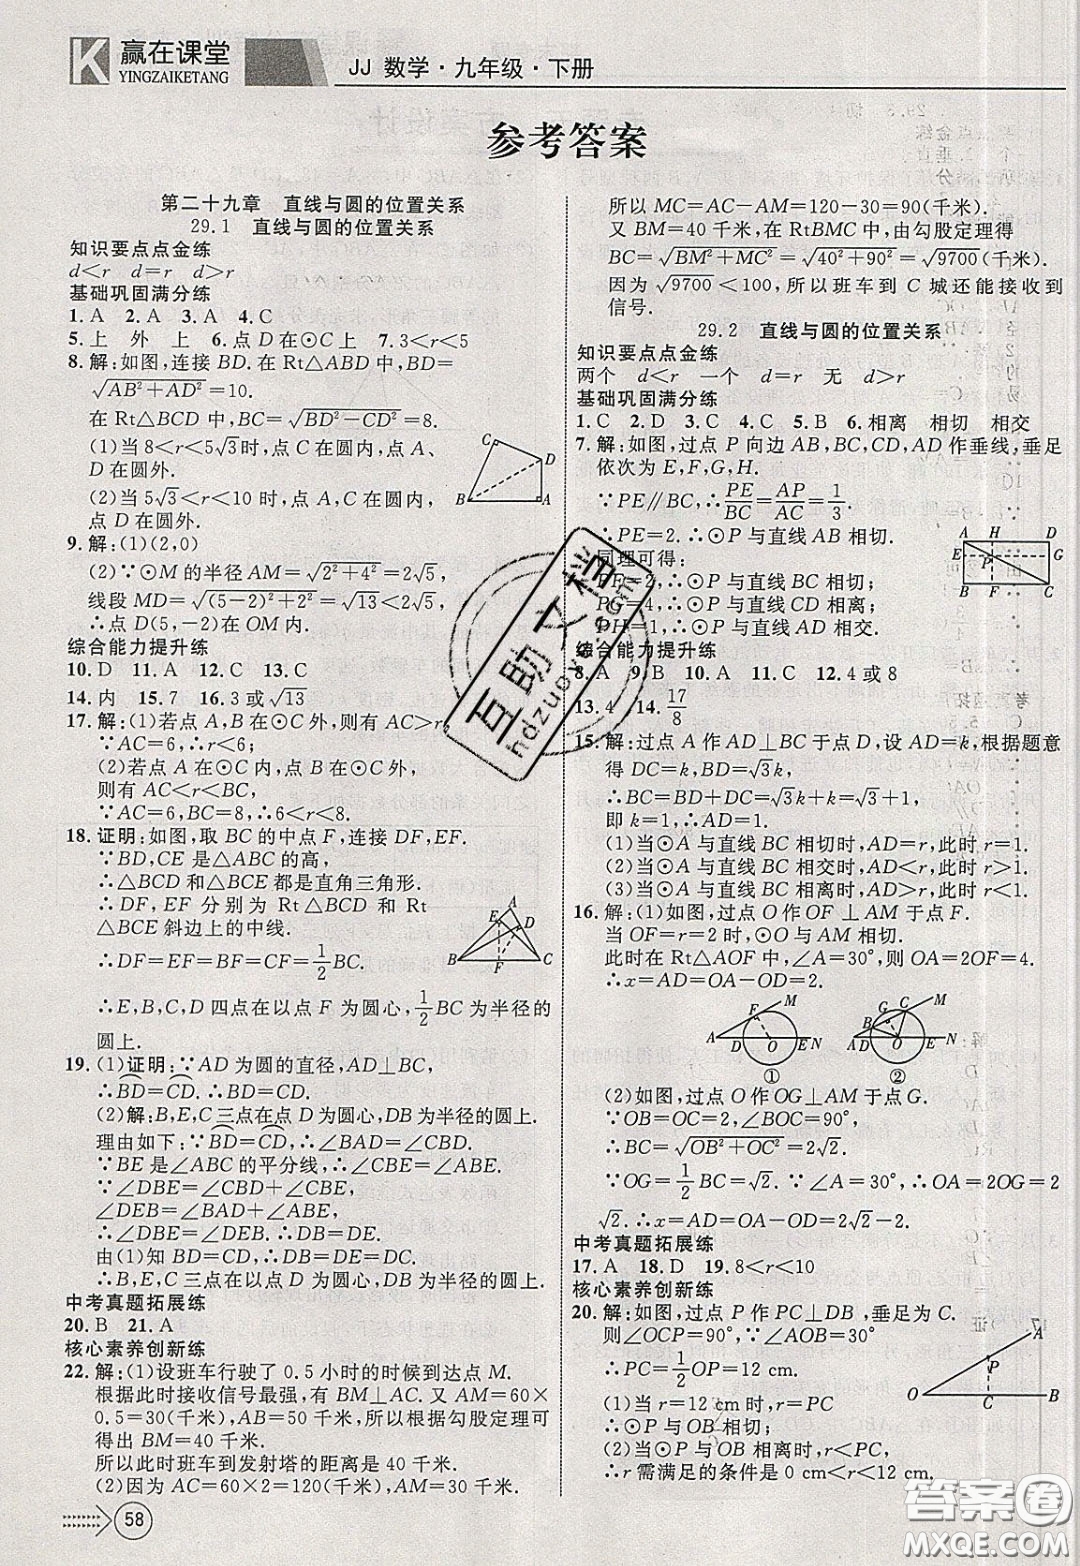 K 赢在课堂
YINGZAIKETANG
JJ 数学·九年级·下册
参考答案
第二十九章 直线与圆的位置关系
29.1 直线与圆的位置关系
知识要点点金练
d<r d=r d>r
基础巩固满分练
1. A 2. A 3. A 4. C
5. 上 外 上 6. 点 D 在⊙C 上 7. 3<r<5
8. 解:如图,连接 BD. 在 Rt△ABD 中,BD=
√(AB²+AD²)=10.
在 Rt△BCD 中,BC=√(BD²-CD²)=8.
(1)当 8<r<5√3时,点 C 在圆内,点
D 在圆外.
(2)当 5√3<r<10 时,点 C 在圆内,
点 D 在圆外.
C D B A
9. 解:(1)(2,0)
(2)∵⊙M 的半径 AM=√(2²+4²)=2√5,
线段 MD=√((5-2)²+2²)=√13<2√5,
∴点 D(5,-2)在⊙M 内.
综合能力提升练
10. D 11. A 12. C 13. C
14. 内 15. 7 16. 3 或√13
17. 解:(1)若点 A,B 在⊙C 外,则有 AC>r,
∵AC=6,∴r<6;
(2)若点 A 在⊙C 内,点 B 在⊙C 外,
则有 AC<r<BC,
∵AC=6,BC=8,∴6<r<8.
18. 证明:如图,取 BC 的中点 F,连接 DF,EF.
∵BD,CE 是△ABC 的高,
∴△BCD 和△BCE 都是直角三角形.
∴DF,EF 分别为 Rt△BCD 和 Rt
△BCE 斜边上的中线.
∴DF=EF=BF=CF=1/2 BC.
A E D B F C
∴E,B,C,D 四点在以点 F 为圆心,1/2 BC 为半径的
圆上.
19. (1)证明:∵AD 为圆的直径,AD⊥BC,
∴BD=CD.∴BD=CD.
(2)解:B,E,C三点在点 D 为圆心,DB为半径的圆上.
理由如下:∵BD=CD,∴∠BAD=∠CBD.
∵BE 是∠ABC 的平分线,∴∠CBE=∠ABE.
∵∠DBE=∠CBD+∠CBE,
∠DEB=∠BAD+∠ABE,
∴∠DBE=∠DEB.∴DB=DE.
由(1)知 BD=CD,∴DB=DE=DC.
∴B,E,C三点在以点 D 为圆心,DB为半径的圆上.
中考真题拓展练
20. B 21. A
核心素养创新练
22. 解:(1)设班车行驶了 0.5 小时的时候到达点 M.
根据此时接收信号最强,有 BM⊥AC. 又 AM=60×
0.5=30(千米),AB=50(千米),所以根据勾股定理可
得出 BM=40 千米.
所以此时班车到发射塔的距离是 40 千米.
(2)因为 AC=60×2=120(千米),AM=30 千米,
58
所以 MC=AC-AM=120-30=90(千米).
又 BM=40 千米,在 RtBMC 中,由勾股定理得
BC=√(BM²+MC²)=√(40²+90²)=√9700(千米).
因为√9700<100,所以班车到 C 城还能接收到
信号.
29.2 直线与圆的位置关系
知识要点点金练
两个 d<r 一个 d=r 无 d>r
基础巩固满分练
1. C 2. D 3. C 4. C 5. B 6. 相离 相切 相交
7. 解:如图,过点 P 向边 AB,BC,CD,AD 作垂线,垂足
依次为 E,F,G,H.
∵PE∥BC,∴PE/BC=AP/AC=1/3.
∴PE=2.∴⊙P 与直线 AB 相切.
同理可得:
PF=2,∴⊙P 与直线 BC 相切;
PG=4,∴⊙P 与直线 CD 相离;
PH=1,∴⊙P 与直线 AD 相交.
A H D E P G B F C
综合能力提升练
8. A 9. B 10. A 11. C 12. 4 或 8
13. 4 14. 17/8
15. 解:过点 A 作 AD⊥BC 于点 D,设 AD=k,根据题意
得 DC=k,BD=√3k,
∴BC=BD+DC=√3k+k=√3+1,
即 k=1,∴AD=1.
(1)当⊙A 与直线 BC 相切时,AD=r,此时 r=1.
(2)当⊙A 与直线 BC 相交时,AD<r,此时 r>1.
(3)当⊙A 与直线 BC 相离时,AD>r,此时 r<1.
16. 解:(1)如图,过点 O 作 OF⊥AM 于点 F.
当 OF=r=2 时,⊙O 与 AM 相切.
此时在 Rt△AOF 中,∠A=30°,所以 OA=2OF=4.
∴x=AD=OA-OD=2.
A F M D O E N ①
A B G C M D O E N ②
(2)如图,过点 O 作 OG⊥AM 于点 G.
∵OB=OC=2,∠BOC=90°,
∴BC=√(OB²+OC²)=2√2.
∵OG=1/2 BC=√2. ∵∠A=30°,∴OA=2OG=2
√2.∴x=AD=OA-OD=2√2-2.
中考真题拓展练
17. A 18. D 19. 8<r<10
核心素养创新练
20. 解:如图,过点 P 作 PC⊥DB,垂足为 C.
则∠OCP=90°,∵∠AOB=30°,
∴PC=1/2 OP=12 cm.
(1)当 r=12 cm 时,r=PC
∴⊙P 与 OB 相切;
(2)当⊙P 与OB 相离时,r<PC,
∴r 需满足的条件是 0 cm<r<12 cm.
A P O C B
互助文档
hdzuoye.com
答案圈
MXQE.COM